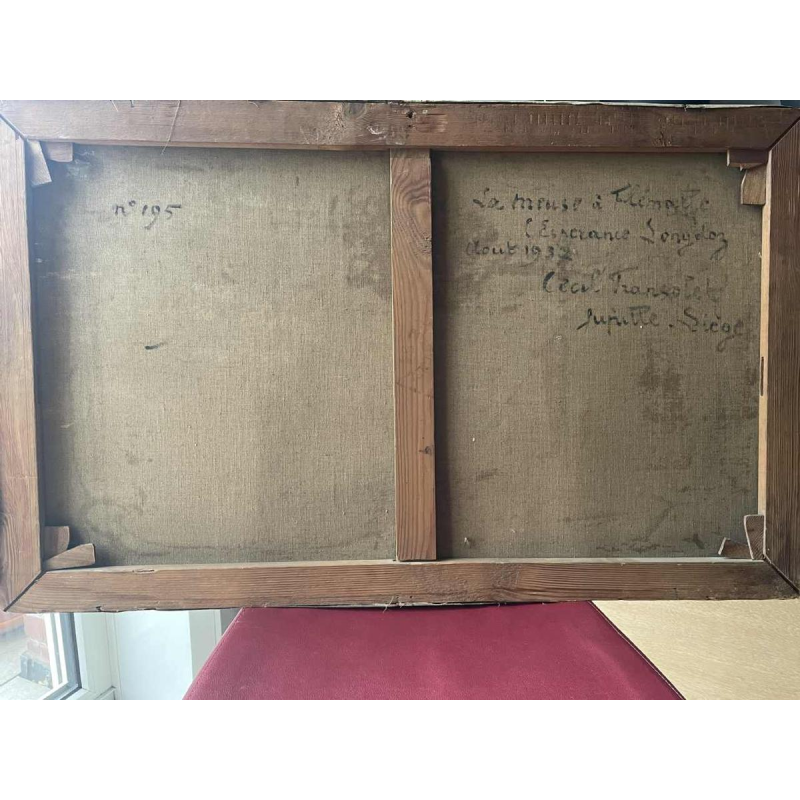 n° 195
La Meuse à Flémalle
l'Espérance Longdoz
Aout 1937
Cécil François
Jupille. Liège